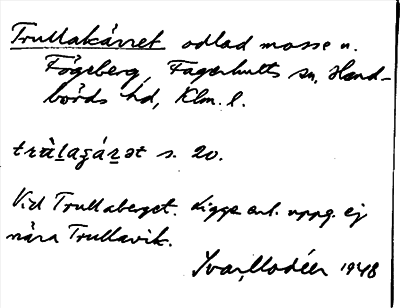 Trullakärret odlad mosse u.
Fågeberg, Fagerhults sn, Hand-
börds hd, Klm. l.
s. 20.
Vid Trullaberget. Ligger enl. uppg. ej
nära Trullavik.
Ivar Modéer 1948